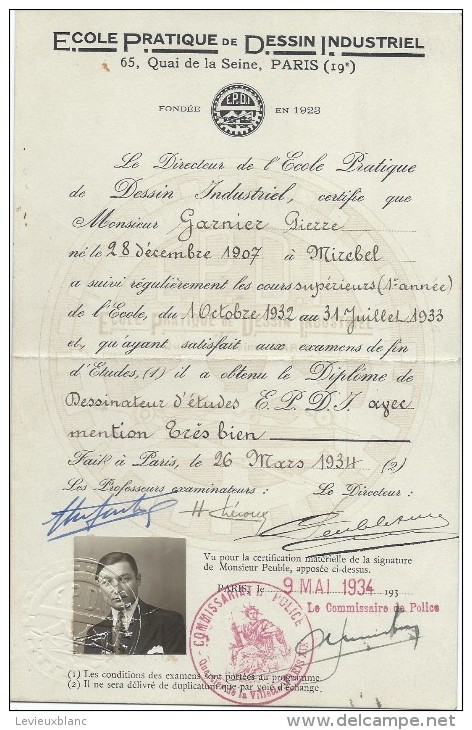 ECOLE PRATIQUE DE DESSIN INDUSTRIEL
65, Quai de la Seine, PARIS (19e)
FONDÉE E.P.D.I EN 1923
Le Directeur de l'Ecole Pratique
de Dessin Industriel, certifie que
Monsieur Garnier Pierre
né le 28 décembre 1907 à Mirebel
a suivi régulièrement les cours supérieurs (1re année)
de l'Ecole, du 1 Octobre 1932 au 31 Juillet 1933
et, qu'ayant satisfait aux examens de fin
d'Etudes, (1) il a obtenu le Diplôme de
Dessinateur d'études E.P.D.I avec
mention Très bien
Fait à Paris, le 26 Mars 1934 (2)
Les Professeurs examinateurs : Le Directeur :
Vu pour la certification matérielle de la signature
de Monsieur Peuble, apposée ci-dessus.
PARIS, le 9 MAI 1934 193
Le Commissaire de Police
COMMISSARIAT DE POLICE
de la Villette
(1) Les conditions des examens sont portées au programme.
(2) Il ne sera délivré de duplicatum que par voie d'échange.
Levieuxblanc
www.delcampe.net